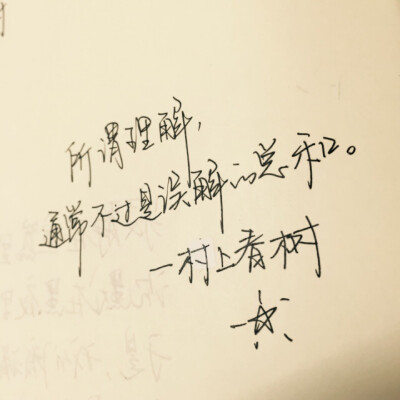 所谓理解，
通常不过是误解的总和。
—村上春树